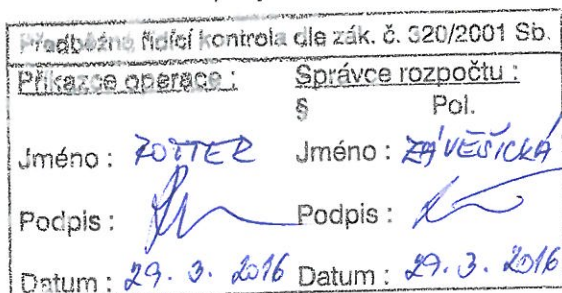 Předběžná řídící kontrola dle zák. č. 320/2001 Sb.
Příkazce operace : Správce rozpočtu :
§ Pol.
Jméno : ZOTTER Jméno : ZÁVĚŠICKÁ
Podpis : Podpis :
Datum : 29. 3. 2016 Datum : 29. 3. 2016